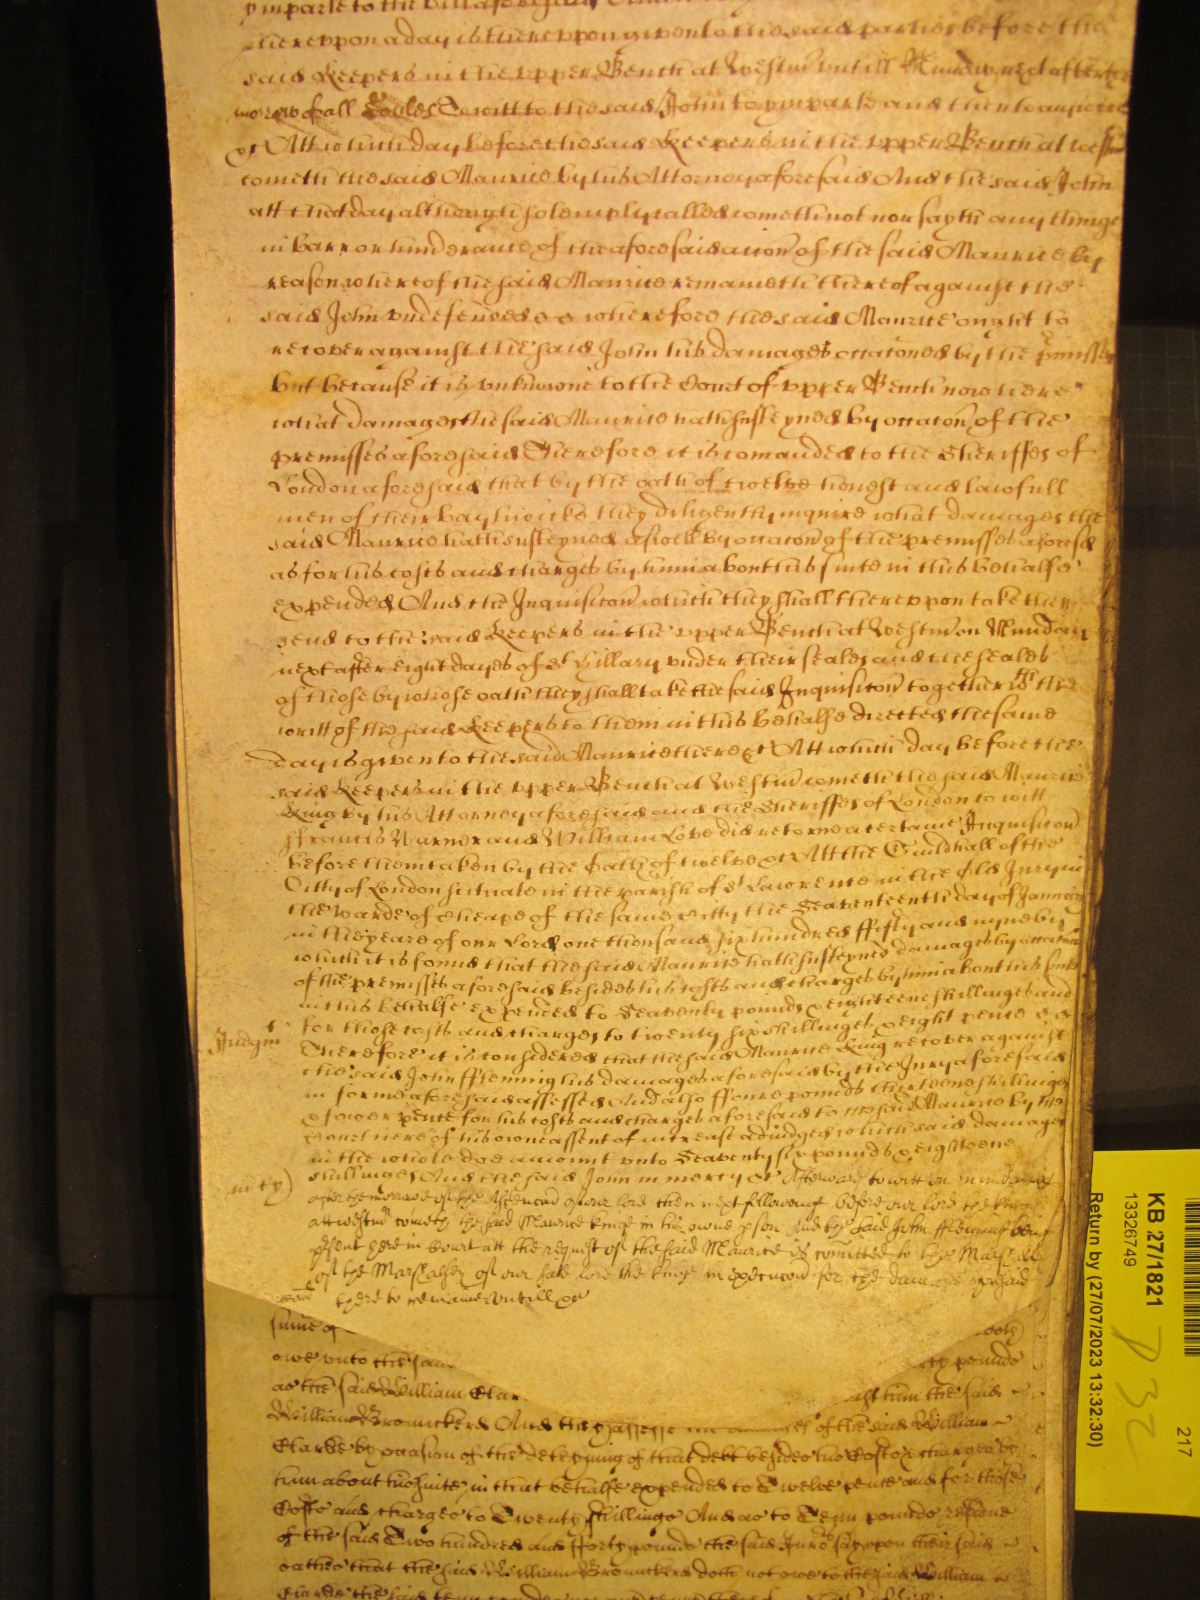 ymparle to the bill aforesaid
Whereupon a day is thereupon given to the said parties before the
said Keepers in the upper Bench at Westmr untill Munday next after the
morrow of all Soules To witt to the said John to ymparle and then to answere
&c Att which day before the said Keepers in the upper Bench at Westmr
cometh the said Maurice by his Attorney aforesaid And the said John
att that day although solemply called cometh not nor sayth any thinge
in barr or hinderance of the aforesaid accon of the said Maurice by
reason whereof the said Maurice remaineth thereof against the
said John undefended &c wherefore the said Maurice ought to
recover against the said John his damages occaconed by the pmisses
but because it is unknowne to the Court of upper Bench now here
what damages the said Maurice hath susteyned by occacon of the
premisses aforesaid Therefore it is comanded to the Sheriffes of
London aforesaid that by the oath of twelve honest and lawfull
men of their baylywicke they diligently inquire what damages the
said Maurice hath susteyned aswell by occacon of the premisses aforesd
as for his costs and charges by him about his suite in this behalfe
expended And the Inquisicon which they shall thereupon take they
send to the said Keepers in the upper Bench at Westmr on Munday
next after eight dayes of St Hillary under their seales and the seales
of those by whose oath they shall take the said Inquisicon together wth the
writt of the said Keepers to them in this behalfe directed the same
day is given to the said Maurice there &c Att which day before the
said Keepers in the upper Bench at Westmr cometh the said Maurice
King by his Attorney aforesaid and the Sheriffes of London to witt
ffrancis Warner and William Love did returne a certaine Inquisicon
before them taken by the Oath of twelve &c Att the Guildhall of the
Citty of London scituate in the parish of St Lawrence in the Old Jury in
the warde of Cheape of the same Citty the Seaventeenth day of January
in the yeare of our Lord one thousand six hundred fifty and nyne by
which it is found that the said Maurice hath susteyned damages by occacon
of the premisses aforesaid besides his costs and charges by him about his suite
in this behalfe expended to Seaventy pounds & eighteene shillinges and
for those costs and charges to twenty six shillinges & eight pence &c
Judgmt Therefore it is considered that the said Maurice King recover against
the said John ffleming his damages aforesaid by the Jury aforesaid
in forme aforesaid assessed And also ffoure pounds thirteene shillinges
& fower pence for his costs and charges aforesaid to the said Maurice by the
Court here of his owne assent of increase adiudged which said damages
in the whole doe amount unto Seaventy six pounds & eighteene
shillinges And the said John in mercy &c Afterward to witt on
after the morrow of the Ascencon of our lord then next following before our lord the Kinge
att westmr cometh the said Maurice Kinge in his owne pson And the said John ffleming being
psent here in Court att the request of the said Maurice is comitted to the Marshall
of the Marshalsey of our said lord the Kinge in execucon for the damages aforesaid
there to remaine untill &c
sume of
owe unto the said ty pounds
as the said William Clar him the said
William Bromickerd And they assesse of the said William
Clarke by occasion of the deteyning of that debt besides his Costs & charges by
him about his suite in that behalfe expended to Twelve pence and for those
Costs and charges to Twenty shillings And as to Tenn pounds residue
of the said Two hundred and fforty pounds the said Jurors say upon their said
oathes that the said William Bromickerd doth not owe to the said William
Clarke the said tenn
KB 27/1821
13326749
217
Return by (27/07/2023 13:32:30)